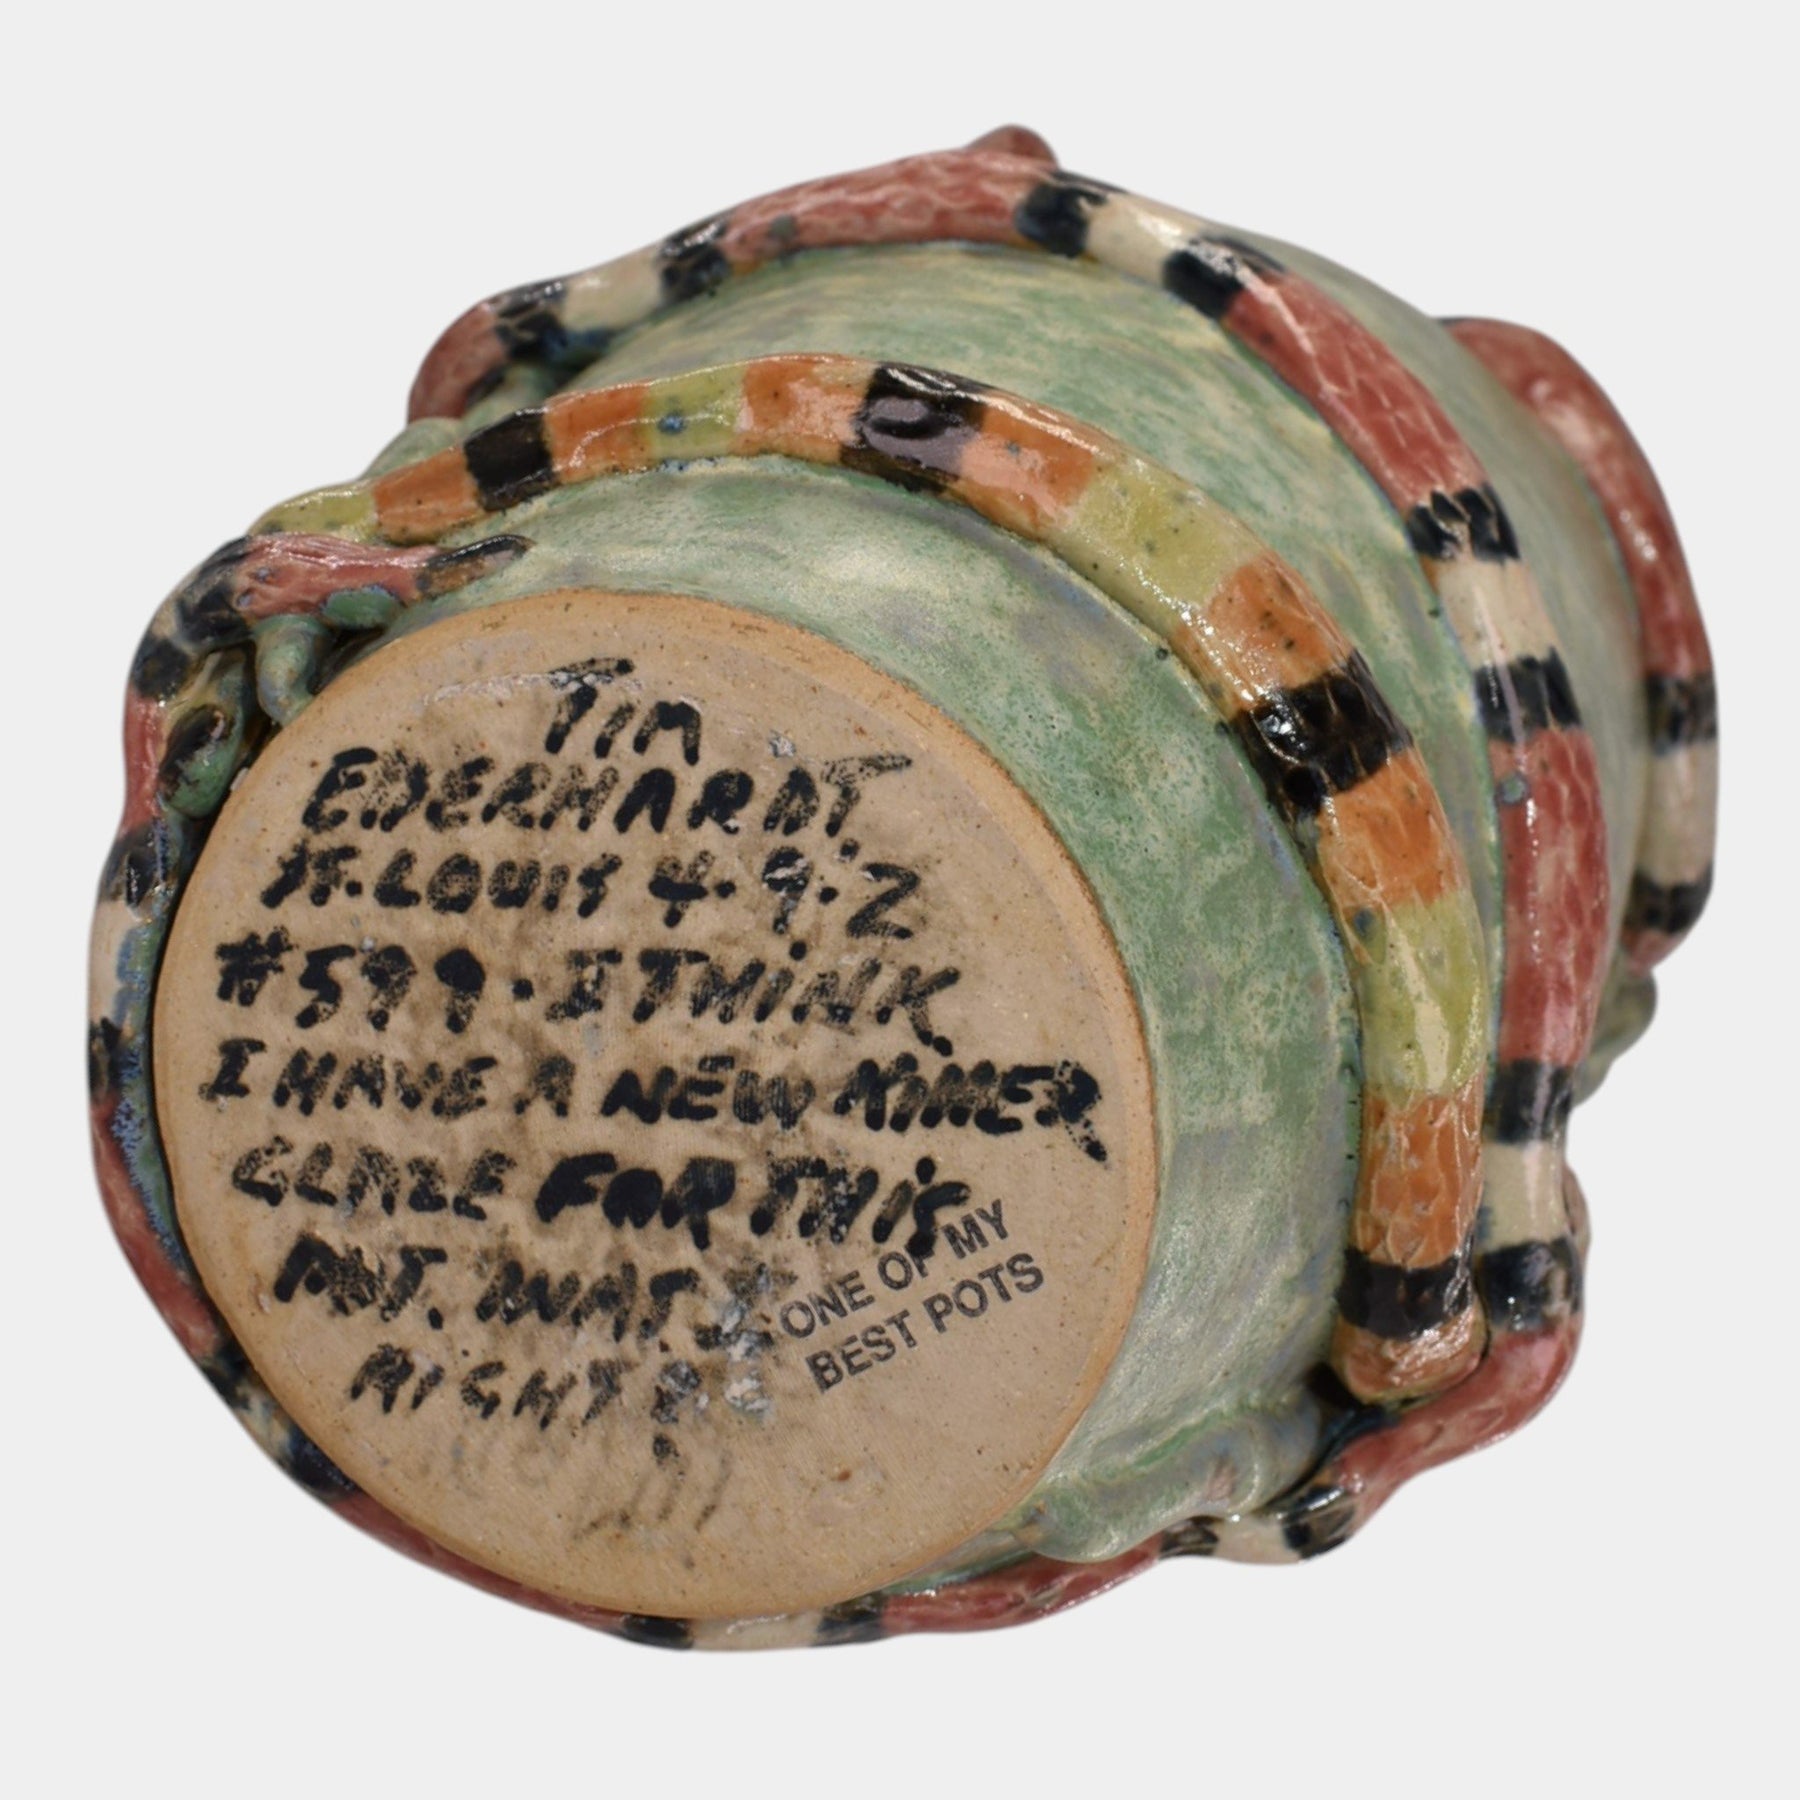 TIM
EBERHARDT
ST. LOUIS 4.9.2
#599. I THINK
I HAVE A NEW KILLER
GLAZE FOR THIS
POT. I WAS
RIGHT
ONE OF MY
BEST POTS